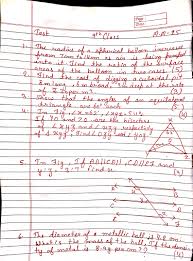 Test 9th Class
1. The radius of a spherical balloon increases
from 7cm to 14cm as air is being pumped
into it. Find the ratio of the surface
areas of the balloon in two cases.
2. Find the cost of digging a cuboidal pit
8m long, 6m broad, 3m deep at the rate
of ₹ 30 per m³.
3. Show that the angles of an equilateral
triangle are 60° each
4. If YO and ZO are the bisectors
of ∠XYZ and ∠XYZ respectively
of find ∠OZY and
5. In fig, If AB||CD, CD||EF and
y:z = 3:7 Find x
6. The diameter of a metallic ball is 4.2 cm.
What is the mass of the ball, if the density
of metal is 8.9g per cm³?